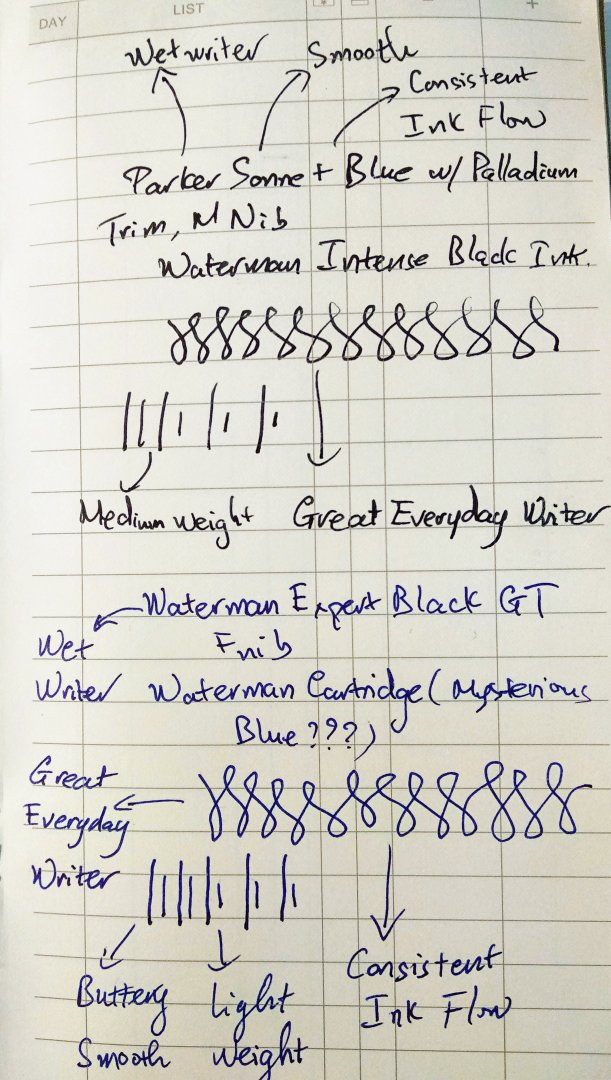 DAY LIST
Wet writer
Smooth
Consistent
Ink Flow
Parker Sonnet Blue w/ Palladium
Trim, M Nib
Waterman Intense Black Ink.
Medium weight
Great Everyday Writer
Waterman Expert Black GT
F nib
Wet
Writer
Waterman Cartridge (Mysterious
Blue ???)
Great
Everyday
Writer
Buttery
Smooth
Light
weight
Consistent
Ink Flow